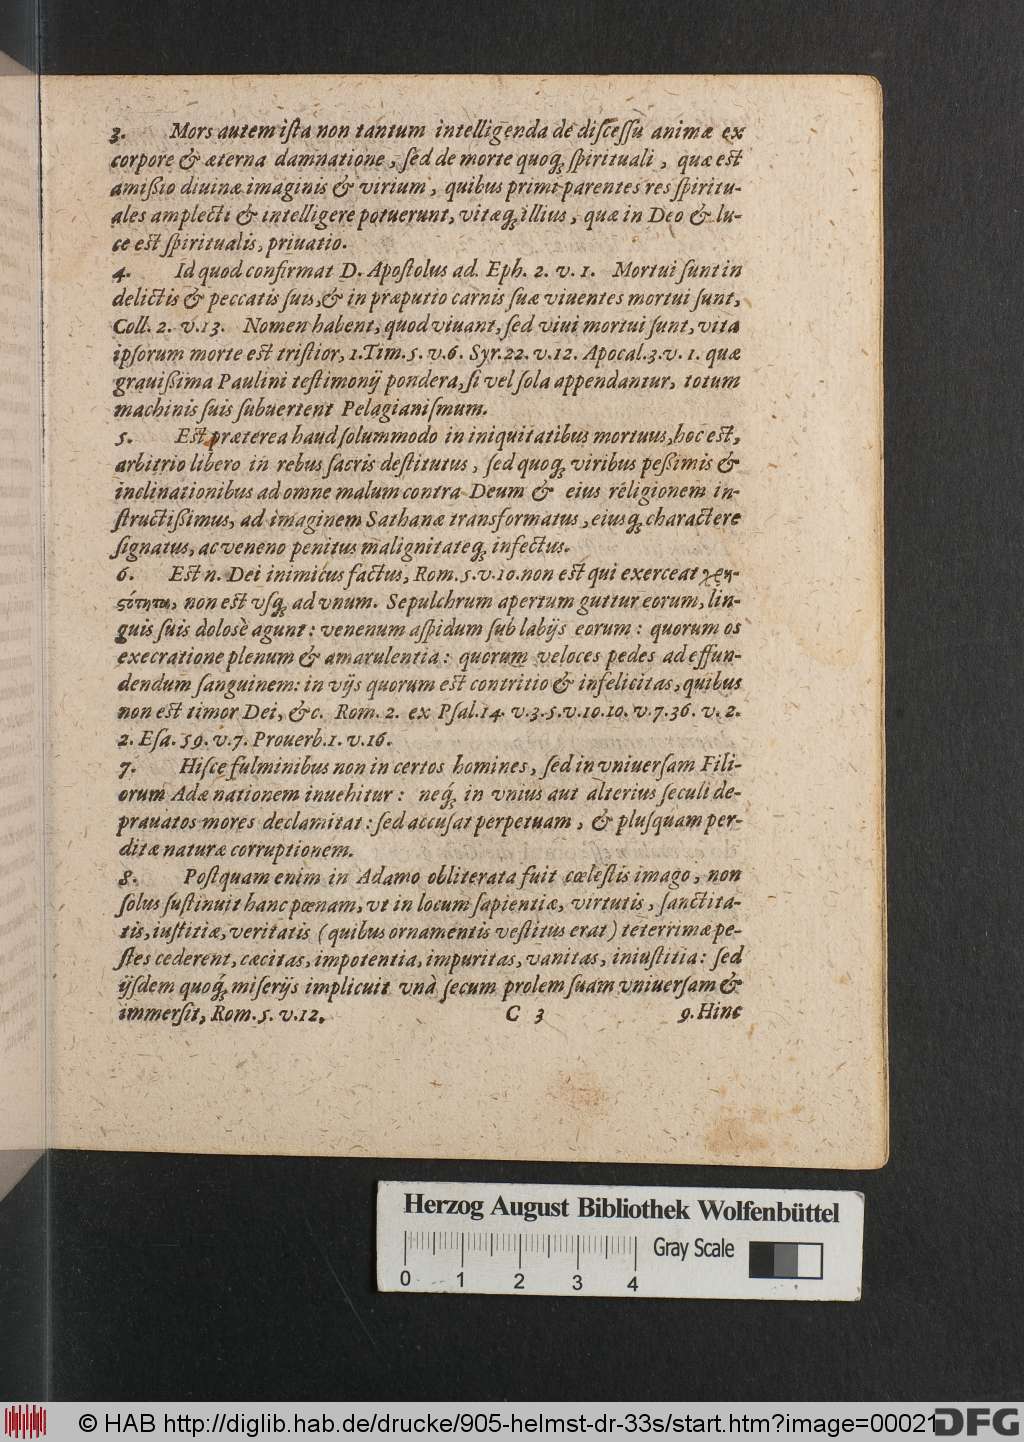 3. Mors autem iſta non tantum intelligenda de diſceſſu animæ ex
corpore & æterna damnatione, ſed de morte quoq́; ſpirituali, quæ eſt
amiſsio diuinæ imaginis & virium, quibus primi parentes res ſpiritu-
ales amplecti & intelligere potuerunt, vitæq́; illius, quæ in Deo & lu-
ce eſt ſpiritualis, priuatio.
4. Id quod confirmat D. Apoſtolus ad. Eph. 2. v. 1. Mortui ſunt in
delictis & peccatis ſuis, & in præputio carnis ſuæ viuentes mortui ſunt,
Coll. 2. v. 13. Nomen habent, quod viuant, ſed viui mortui ſunt, vita
ipſorum morte eſt triſtior, 1. Tim. 5. v. 6. Syr. 22. v. 12. Apocal. 3. v. 1. quæ
grauiſsima Paulini teſtimonij pondera, ſi vel ſola appendantur, totum
machinis ſuis ſubuertent Pelagianiſmum.
5. Eſt præterea haud ſolummodo in iniquitatibus mortuus, hoc eſt,
arbitrio libero in rebus ſacris deſtitutus, ſed quoq́; viribus peſsimis &
inclinationibus ad omne malum contra Deum & eius religionem in-
ſtructiſsimus, ad imaginem Sathanæ transformatus, eiusq́; charactere
ſignatus, ac veneno penitus malignitateq́; infectus.
6. Eſt n. Dei inimicus factus, Rom. 5. v. 10. non eſt qui exerceat χρη-
ϛότητα, non eſt vſq́; ad vnum. Sepulchrum apertum guttur eorum, lin-
guis ſuis dolosè agunt: venenum aſpidum ſub labijs eorum: quorum os
execratione plenum & amarulentia: quorum veloces pedes ad effun-
dendum ſanguinem: in vijs quorum eſt contritio & infelicitas, quibus
non eſt timor Dei, &c. Rom. 2. ex Pſal. 14. v. 3. 5. v. 10. 10. v. 7. 36. v. 2.
2. Eſa. 59. v. 7. Prouerb. 1. v. 16.
7. Hiſce fulminibus non in certos homines, ſed in vniuerſam Fili-
orum Adæ nationem inuehitur: neq́; in vnius aut alterius ſeculi de-
prauatos mores declamitat: ſed accuſat perpetuam, & pluſquam per-
ditæ naturæ corruptionem.
8. Poſtquam enim in Adamo obliterata fuit cœleſtis imago, non
ſolus ſuſtinuit hanc pœnam, vt in locum ſapientiæ, virtutis, ſanctita-
tis, iuſtitiæ, veritatis (quibus ornamentis veſtitus erat) teterrimæ pe-
ſtes cederent, cæcitas, impotentia, impuritas, vanitas, iniuſtitia: ſed
ijſdem quoq́; miſerijs implicuit vnà ſecum prolem ſuam vniuerſam &
immerſit, Rom. 5. v. 12.
C 3 9. Hinc
Herzog August Bibliothek Wolfenbüttel
Gray Scale
0 1 2 3 4
© HAB http://diglib.hab.de/drucke/905-helmst-dr-33s/start.htm?image=00021
DFG